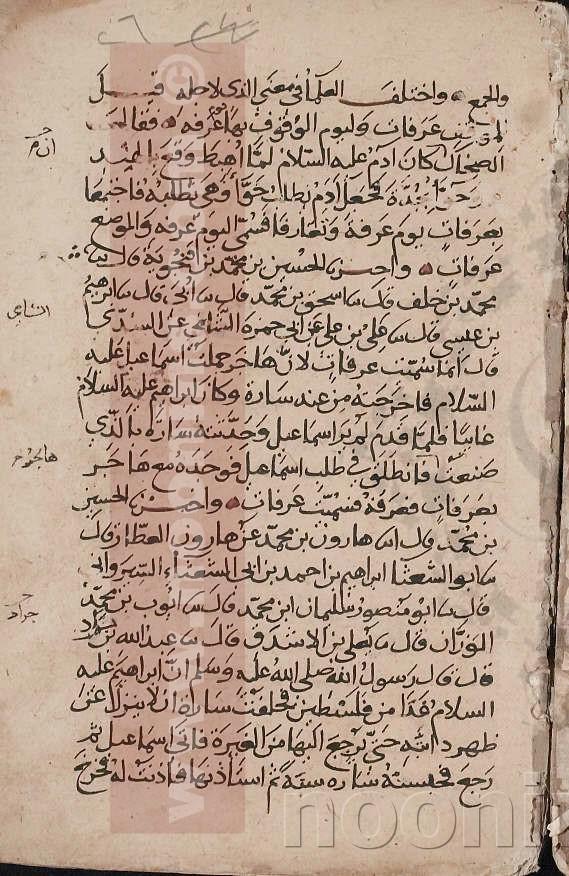 والجمع واختلف العلماء في معنى الذي لاجله قيل
للموقف عرفات وليوم الوقوف بها عرفه فقال
الضحاك كان ادم عليه السلام لما اهبط وقع بالهند
وحوا بجدة فجعل ادم يطلب حوا وهي تطلبه فاجتمعا
بعرفات يوم عرفة وتعارفا فسمي اليوم عرفه والموضع
عرفات واخبرنا الحسين بن محمد بن فنجويه قال سا
محمد بن خلف قال سا اسحق بن محمد قال سا ابى قال سا ابرهيم
بن عيسى قال سا علي بن علي عن ابي حمزة الثمالي عن السدي
قال انما سميت عرفات لان هاجر حملت اسماعيل عليه
السلام فاخرجته من عند سارة وكان ابراهيم عليه السلام
غايبا فلما قدم لم ير اسماعيل وحدثته سارة بالذي
صنعت فانطلق في طلب اسماعيل فوجده مع هاجر
بعرفات فعرفه فسميت عرفات واخبرنا الحسين
بن محمد قال سا هارون بن محمد عن هارون العطار قال
سا ابو الشعثا ابراهيم بن احمد بن ابي الشعثاء السيرواني
قال سا ابو منصور سليمان ابن محمد قال سا ايوب بن محمد
الوزان قال سا يعلى بن الاشدق قال سا عبد الله بن جراد
قال قال رسول الله صلى الله عليه وسلم ان ابراهيم عليه
السلام غدا من فلسطين فحلفت سارة ان لا ينزل عن
ظهر دابته حتى يرجع اليها من الغيرة فاتى اسماعيل ثم
رجع فحبسته ساره سنة ثم استاذنها فاذنت له فخرج
هاجر
جراد
www.
nooni